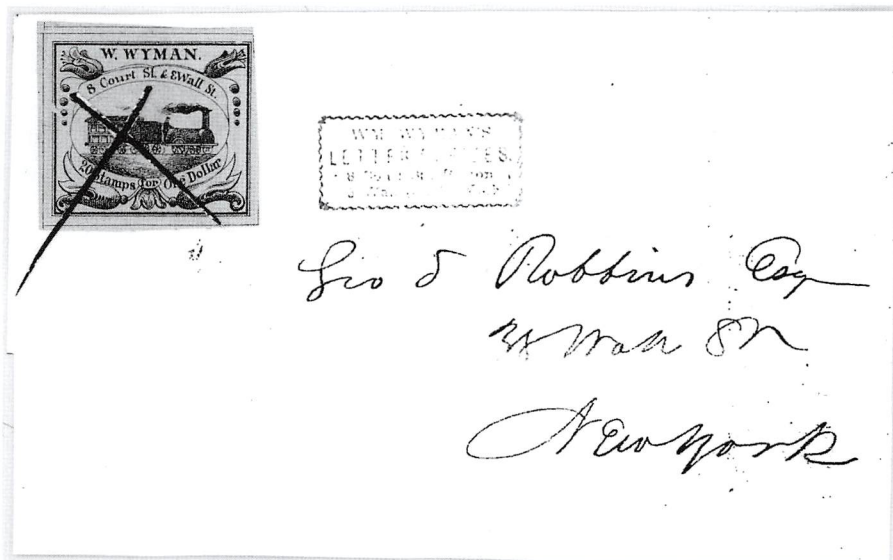 W. WYMAN.
8 Court St. & 8 Wall St.
20 Stamps for One Dollar
WM. WYMAN'S
LETTER OFFICES.
Geo S Robbins Esq
Wall St
New York